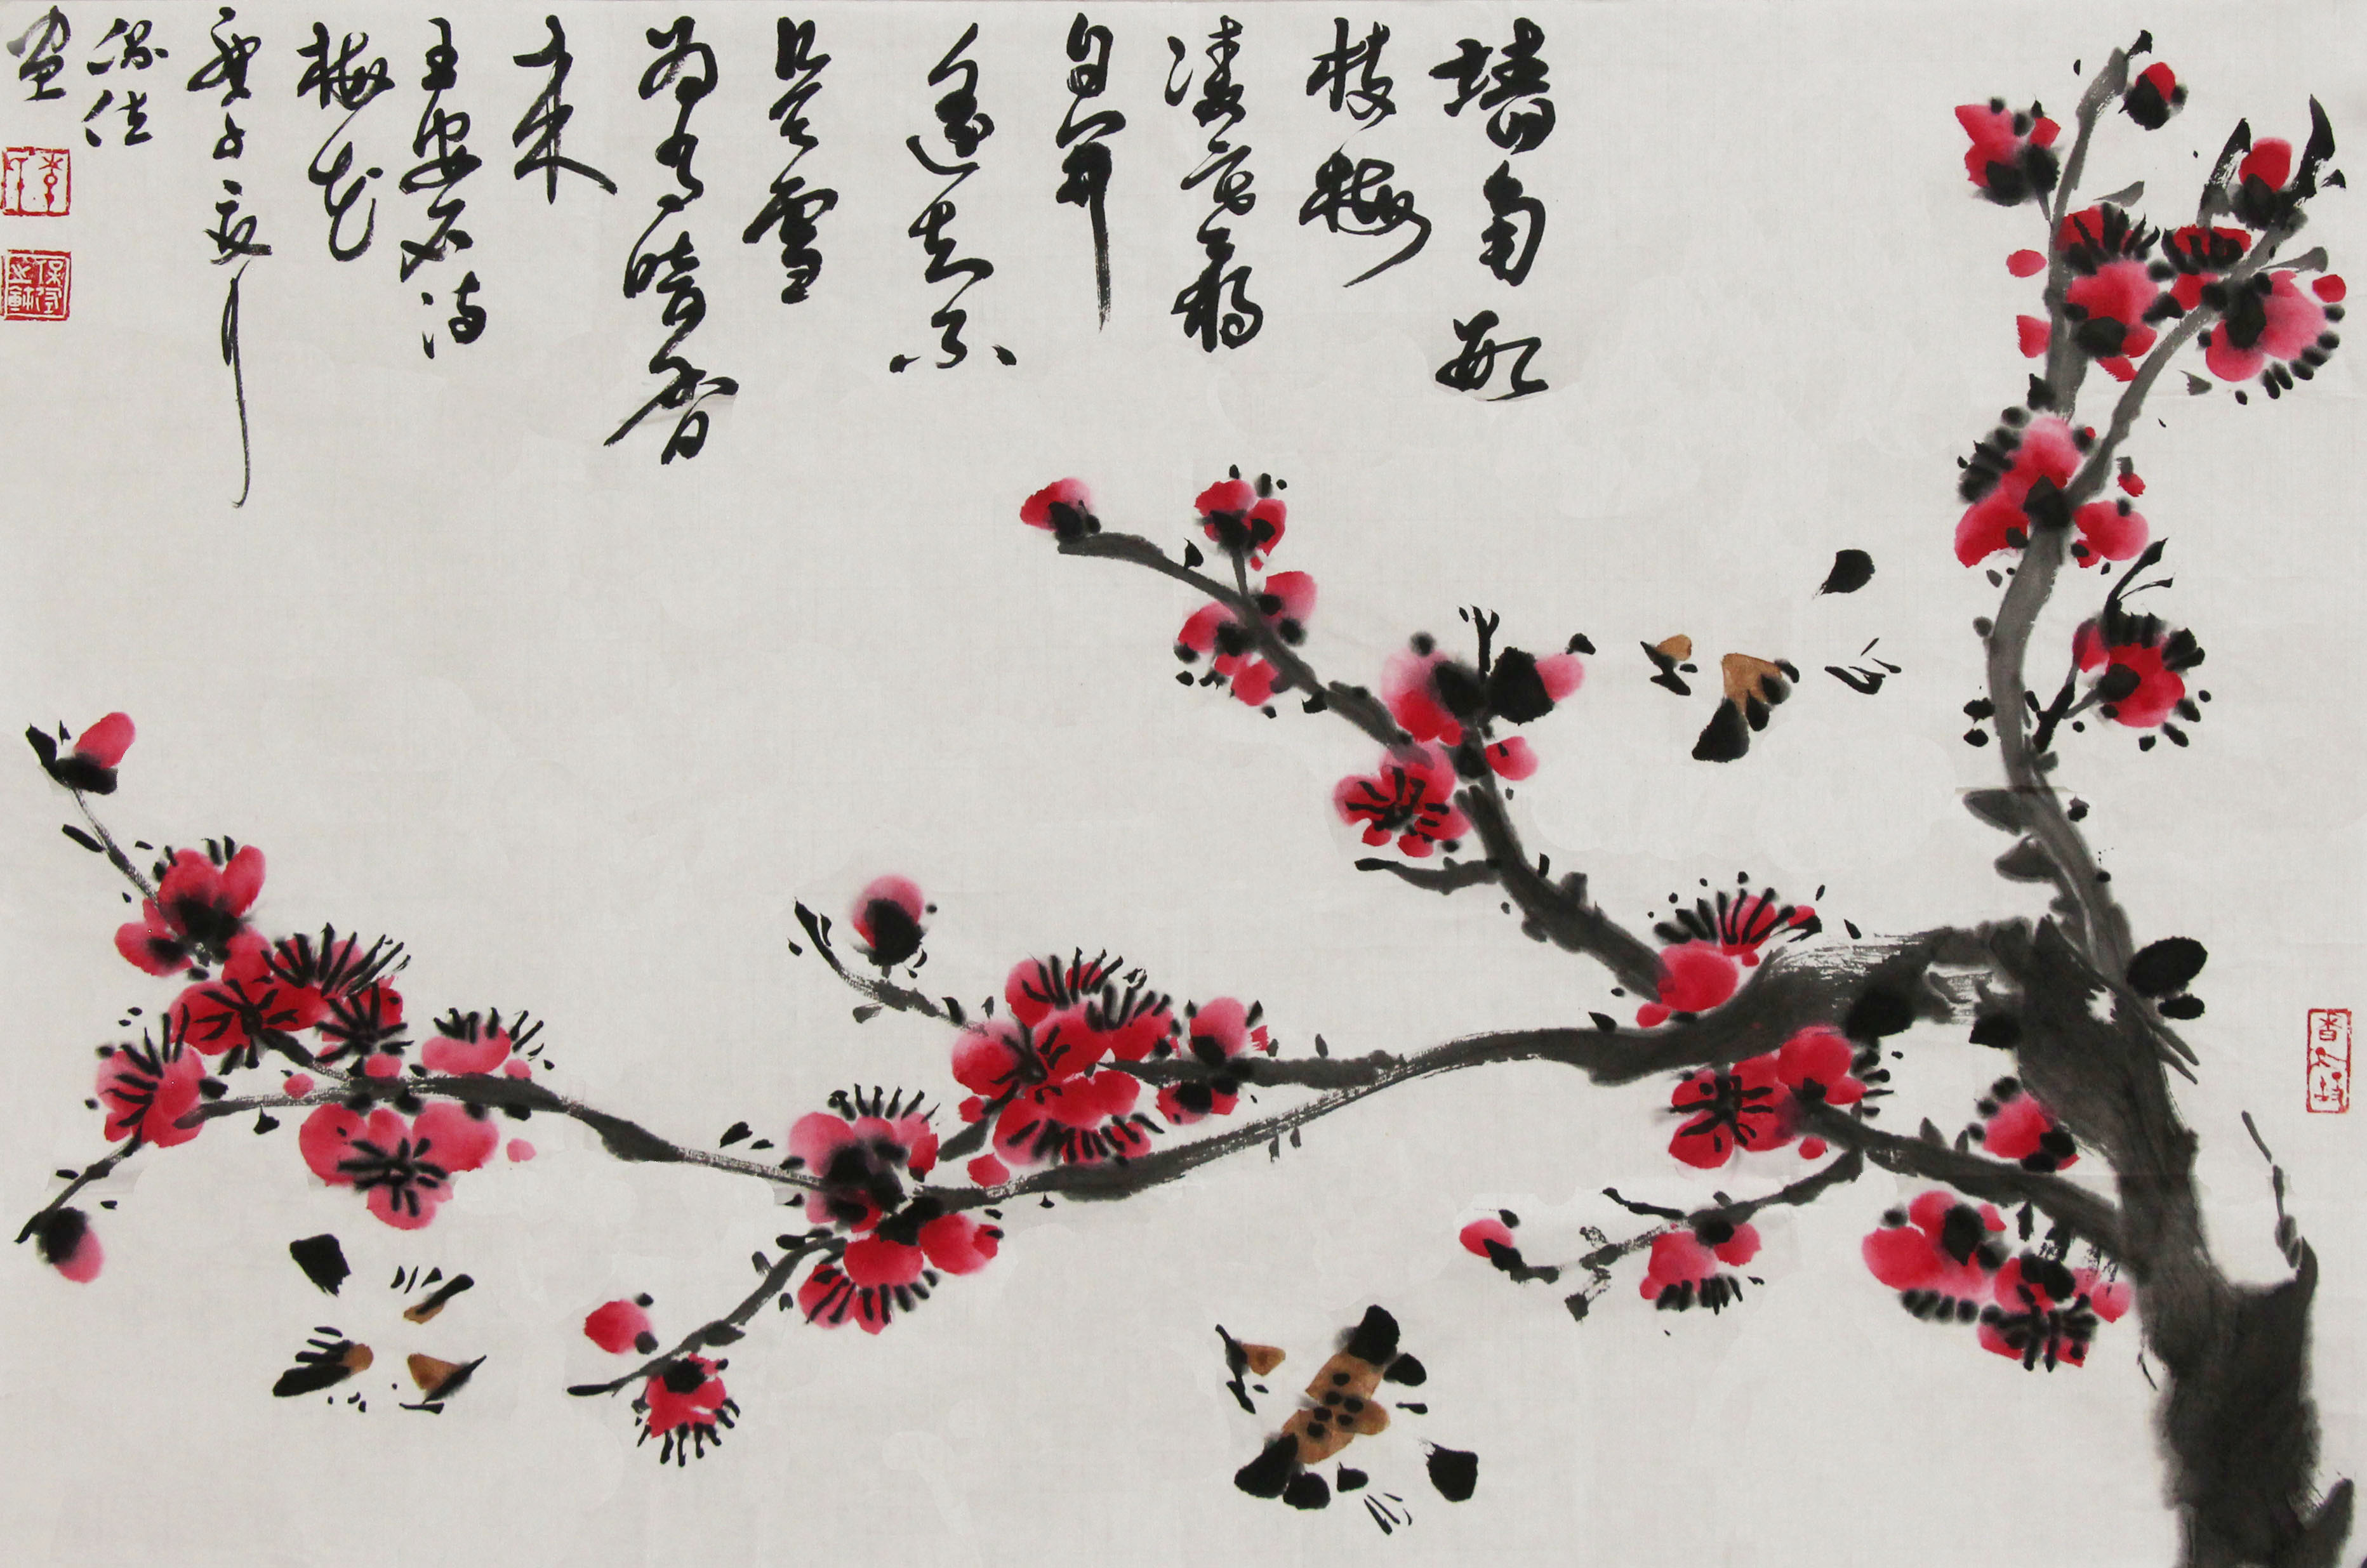 墙角数
枝梅
凌寒独
自开
遥知不
是雪
为有暗香
来
王安石诗
梅花
庚子夏月
保
画